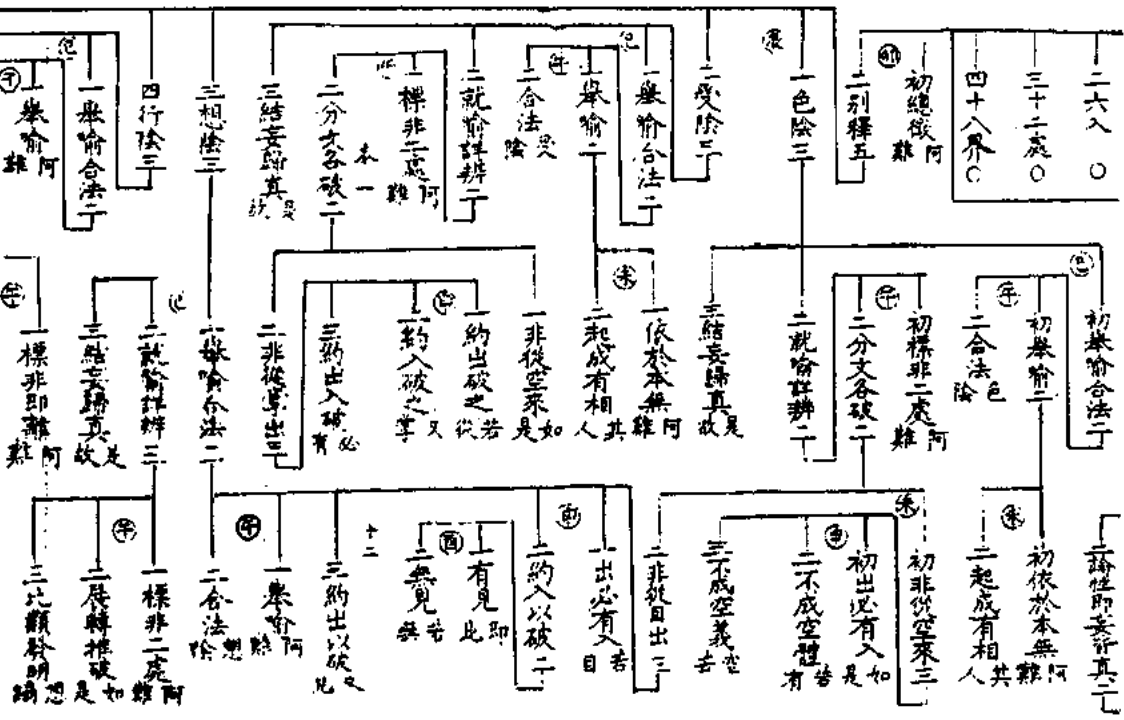 二六入 ○
三十二處 ○
四十八界 ○
初總徵 阿難
卯
二別釋五
辰
一色陰三
二受陰三
巳
一舉喻合法二
午
一舉喻二
二合法 受陰
二就喻詳辨二
一標非二處 阿難
二分文各破二
三結妄歸真 是故
三想陰三
四行陰三
巳
一舉喻合法二
午
一舉喻 阿難
巳
初舉喻合法二
午
初舉喻二
二合法 色陰
午
初標非二處 阿難
二分文各破二
二就喻詳辨二
三結妄歸真 是故
未
一依於本無 阿難
二起成有相 其人
一非從空來 如是
申
一約出破之 若從
二約入破之 又掌
三約出入破 必有
二非從掌出三
一舉喻合法二
巳
二就喻詳辨三
三結妄歸真 是故
午
一標非即離 阿難
二論性即妄皆真二
未
初依於本無 阿難
二起成有相 其人
未
初非從空來三
申
初出必有入 如是
二不成空體 若有
三不成空義 空若
二非從目出三
申
一出必有入 若目
二約入以破二
酉
一有見 即此
二無見 若無
三約出以破 又見
十二
午
一舉喻 阿難
二合法 想陰
午
一標非二處 阿難
二展轉推破 如是
三比類發明 想蹋